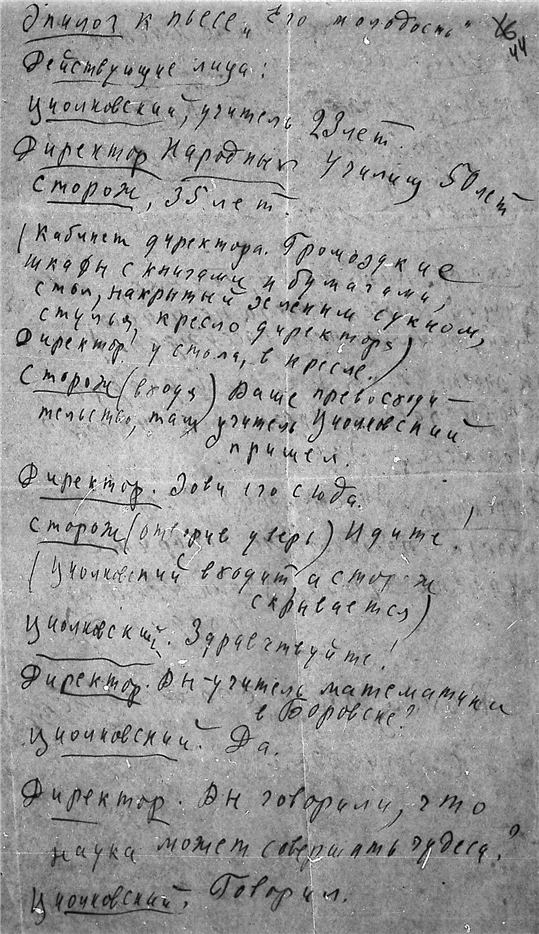 Эпилог к пьесе „Его молодость“ 44
Действующие лица:
Циолковский, учитель 23 лет.
Директор Народных Училищ 50 лет
Сторож, 35 лет.
(Кабинет директора. Громоздкие
шкафы с книгами и бумагами,
стол, накрытый зеленым сукном,
стулья, кресло директора)
Директор у стола, в кресле.)
Сторож (входя) Ваше превосходи-
тельство, там учитель Циолковский
пришел.
Директор. Зови его сюда.
Сторож (отворив дверь) Идите!
(Циолковский входит а сторож
скрывается)
Циолковский. Здравствуйте!
Директор. Вы-учитель математики
в Боровске?
Циолковский. Да.
Директор. Вы говорили, что
наука может совершать чудеса?
Циолковский. Говорил.